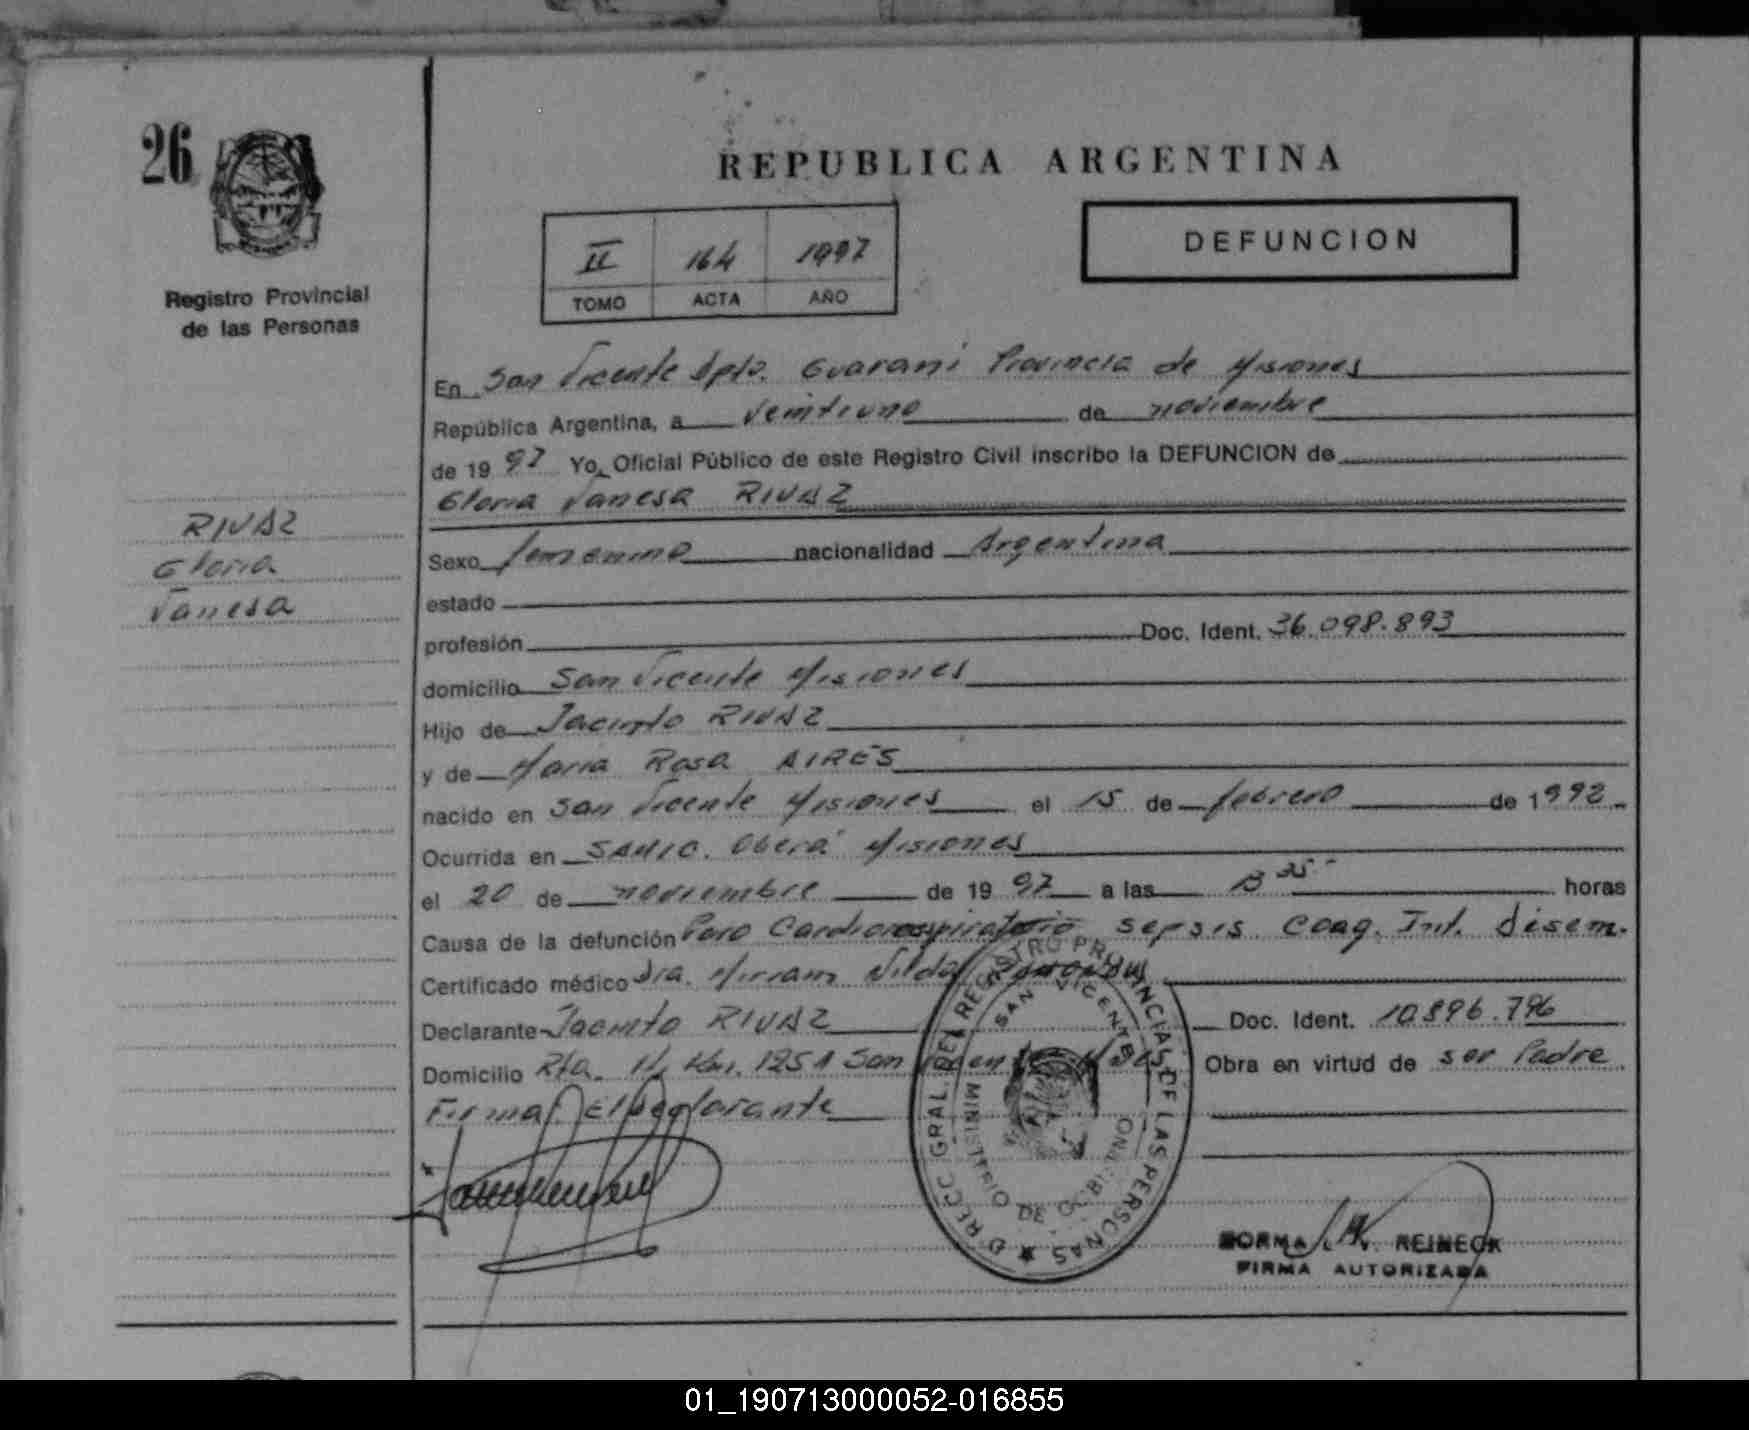 26
REPUBLICA ARGENTINA
DEFUNCION
II 164 1997
TOMO ACTA AÑO
Registro Provincial
de las Personas
En San Vicente Dpto. Guaraní Provincia de Misiones
República Argentina, a veintiuno de noviembre
de 1997 Yo, Oficial Público de este Registro Civil inscribo la DEFUNCION de
Gloria Vanesa RIVAZ
RIVAZ
Gloria
Vanesa
Sexo femenino nacionalidad Argentina
estado
profesión Doc. Ident. 36.098.893
domicilio San Vicente Misiones
Hijo de Jacinto RIVAZ
y de María Rosa AIRES
nacido en San Vicente Misiones el 15 de febrero de 1992
Ocurrida en SAMIC. Oberá Misiones
el 20 de noviembre de 1997 a las 13 35 horas
Causa de la defunción Paro Cardiorespiratorio sepsis Coag. Int. disem.
Certificado médico Dra. Mirram Nilda
Declarante Jacinto RIVAZ Doc. Ident. 10.896.796
Domicilio Rta. Km. 1251 San Vicente Obra en virtud de ser Padre
Firma: El Declarante
DIRECC. GRAL. DEL REGISTRO PROVINCIAL DE LAS PERSONAS
SAN VICENTE
MINISTERIO DE GOBIERNO
NORMA V. REINECK
FIRMA AUTORIZADA
01_190713000052-016855